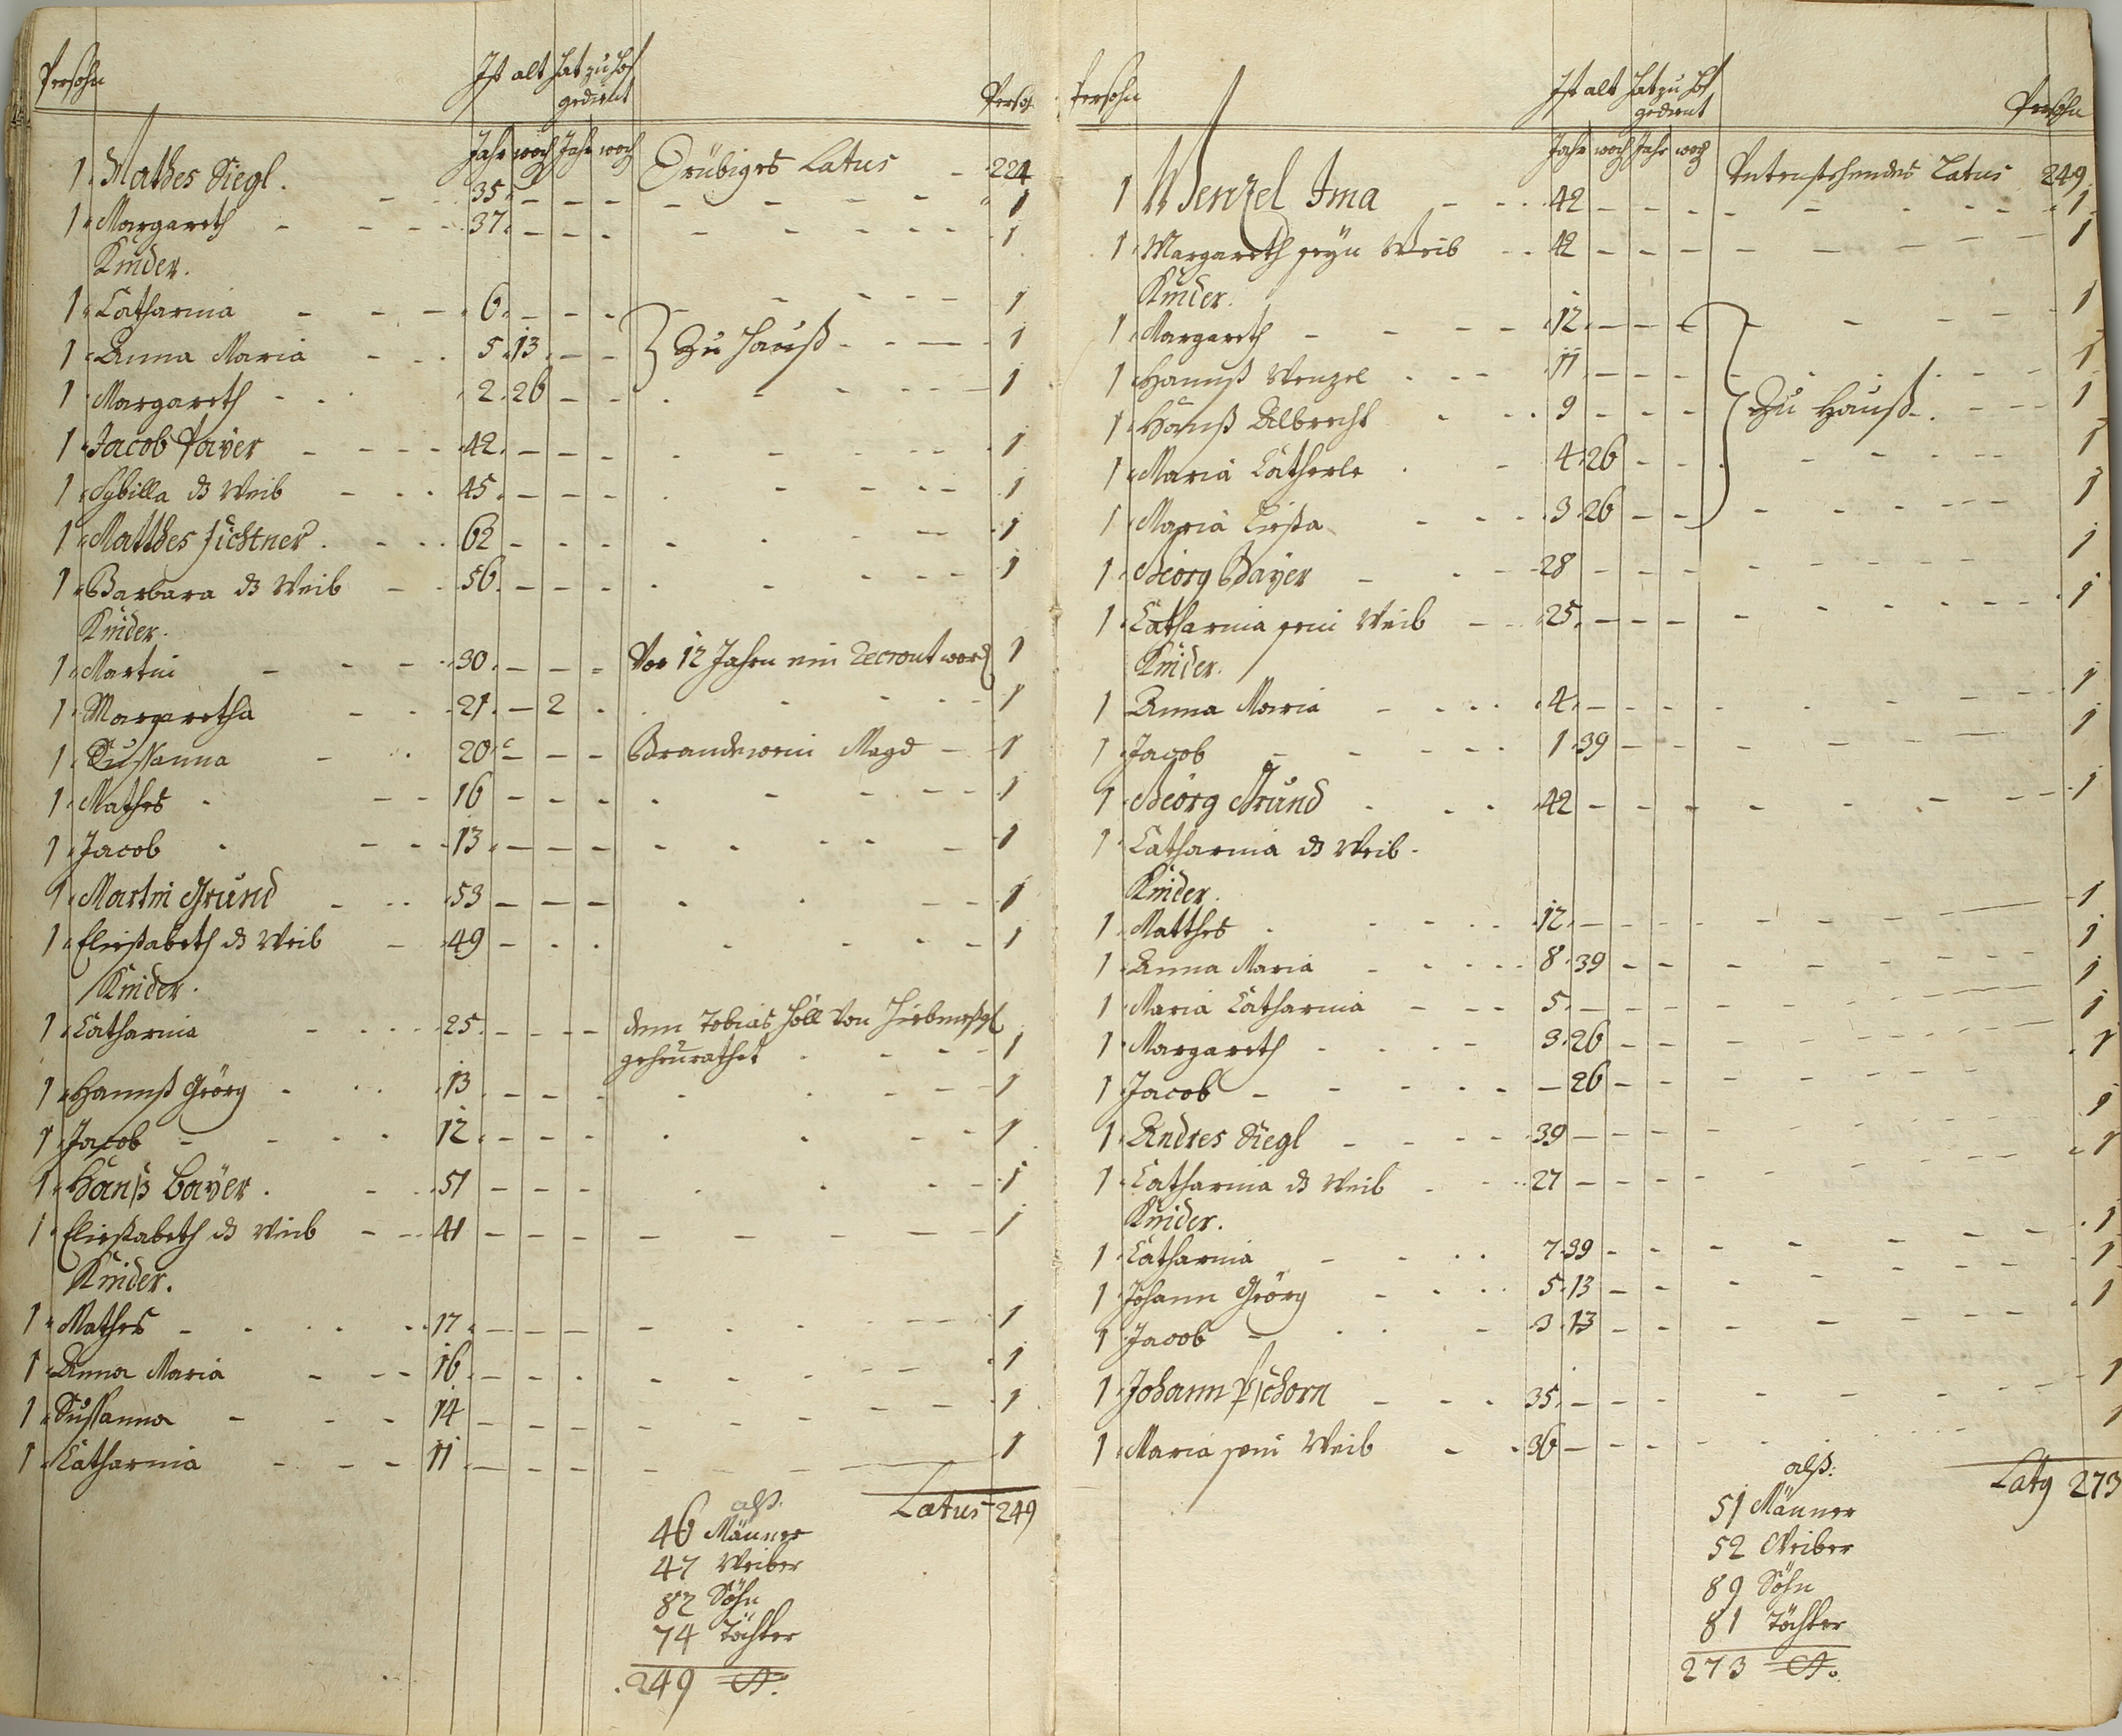 Persohn Ist alt hat zu hof Persoh
gedient
Jahr woch Jahr woch
Drübiges Latus 224
1 Mathes Siegl 35 1
1 Margareth 37 1
Kinder.
1 Catharina 6 1
1 Anna Maria 5 13 Zu Hauß 1
1 Margareth 2 26 1
1 Jacob Payer 42 1
1 Sybilla ds Weib 45 1
1 Matthes Fichtner 62 1
1 Barbara ds Weib 56 1
Kinder.
1 Martin 30 Vor 12 Jahren ein Recrout word 1
1 Margaretha 21 2 1
1 Sussanna 20 Brandewein Magd 1
1 Mathes 16 1
1 Jacob 13 1
1 Martin Grund 53 1
1 Elisabeth ds Weib 49 1
Kinder.
1 Catharina 25 dem Tobias Höll Von
geheurathet 1
1 Hannß Görg 13 1
1 Jacob 12 1
1 Hanß Bayer 51 1
1 Elisabeth ds Weib 41 1
Kinder.
1 Mathes 17 1
1 Anna Maria 16 1
1 Sussanna 14 1
1 Catharina 11 1
Latus 249
alß:
46 Männer
47 Weiber
82 Söhn
74 Töchter
249
Persohn Ist alt hat zu hof Persohn
gedient
Jahr woch Jahr woch
Untenstehendes Latus 249
1 Wenzel Ima 42 1
1 Margareth seyn Weib 42 1
Kinder.
1 Margareth 12 1
1 Hannß Wenzel 11 1
1 Hanß Albrecht 9 Zu Hauß 1
1 Maria Catherle 4 26 1
1 Maria Liesa 3 26 1
1 Georg Bayer 28 1
1 Catharina sein Weib 25 1
Kinder.
1 Anna Maria 4 1
1 Jacob 1 39 1
1 Georg Grund 42 1
1 Catharina ds Weib
Kinder.
1 Matthes 12 1
1 Anna Maria 8 39 1
1 Maria Catharina 5 1
1 Margareth 3 26 1
1 Jacob 26 1
1 Andres Siegl 39 1
1 Catharina ds Weib 27 1
Kinder.
1 Catharina 7 39 1
1 Johann Görg 5 13 1
1 Jacob 3 13 1
1 Johann Pschorn 35 1
1 Maria sein Weib 36 1
Latg 273
alß:
51 Männer
52 Weiber
89 Söhn
81 Töchter
273